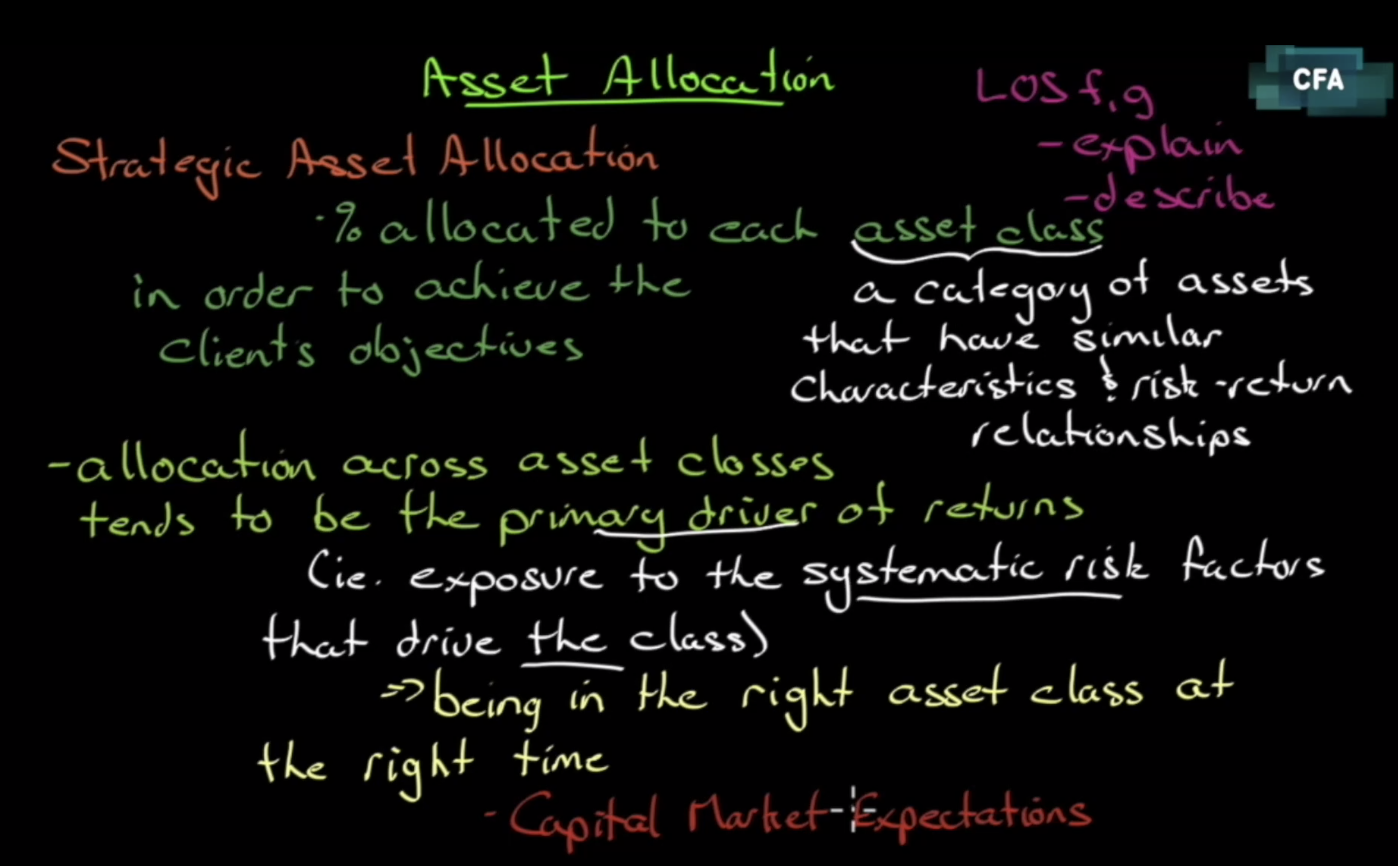 Asset Allocation
LOS f, g
- explain
- describe
CFA
Strategic Asset Allocation
· % allocated to each asset class
in order to achieve the
clients objectives
a category of assets
that have similar
characteristics & risk-return
relationships
- allocation across asset classes
tends to be the primary driver of returns
(ie. exposure to the systematic risk factors
that drive the class)
=> being in the right asset class at
the right time
- Capital Market Expectations